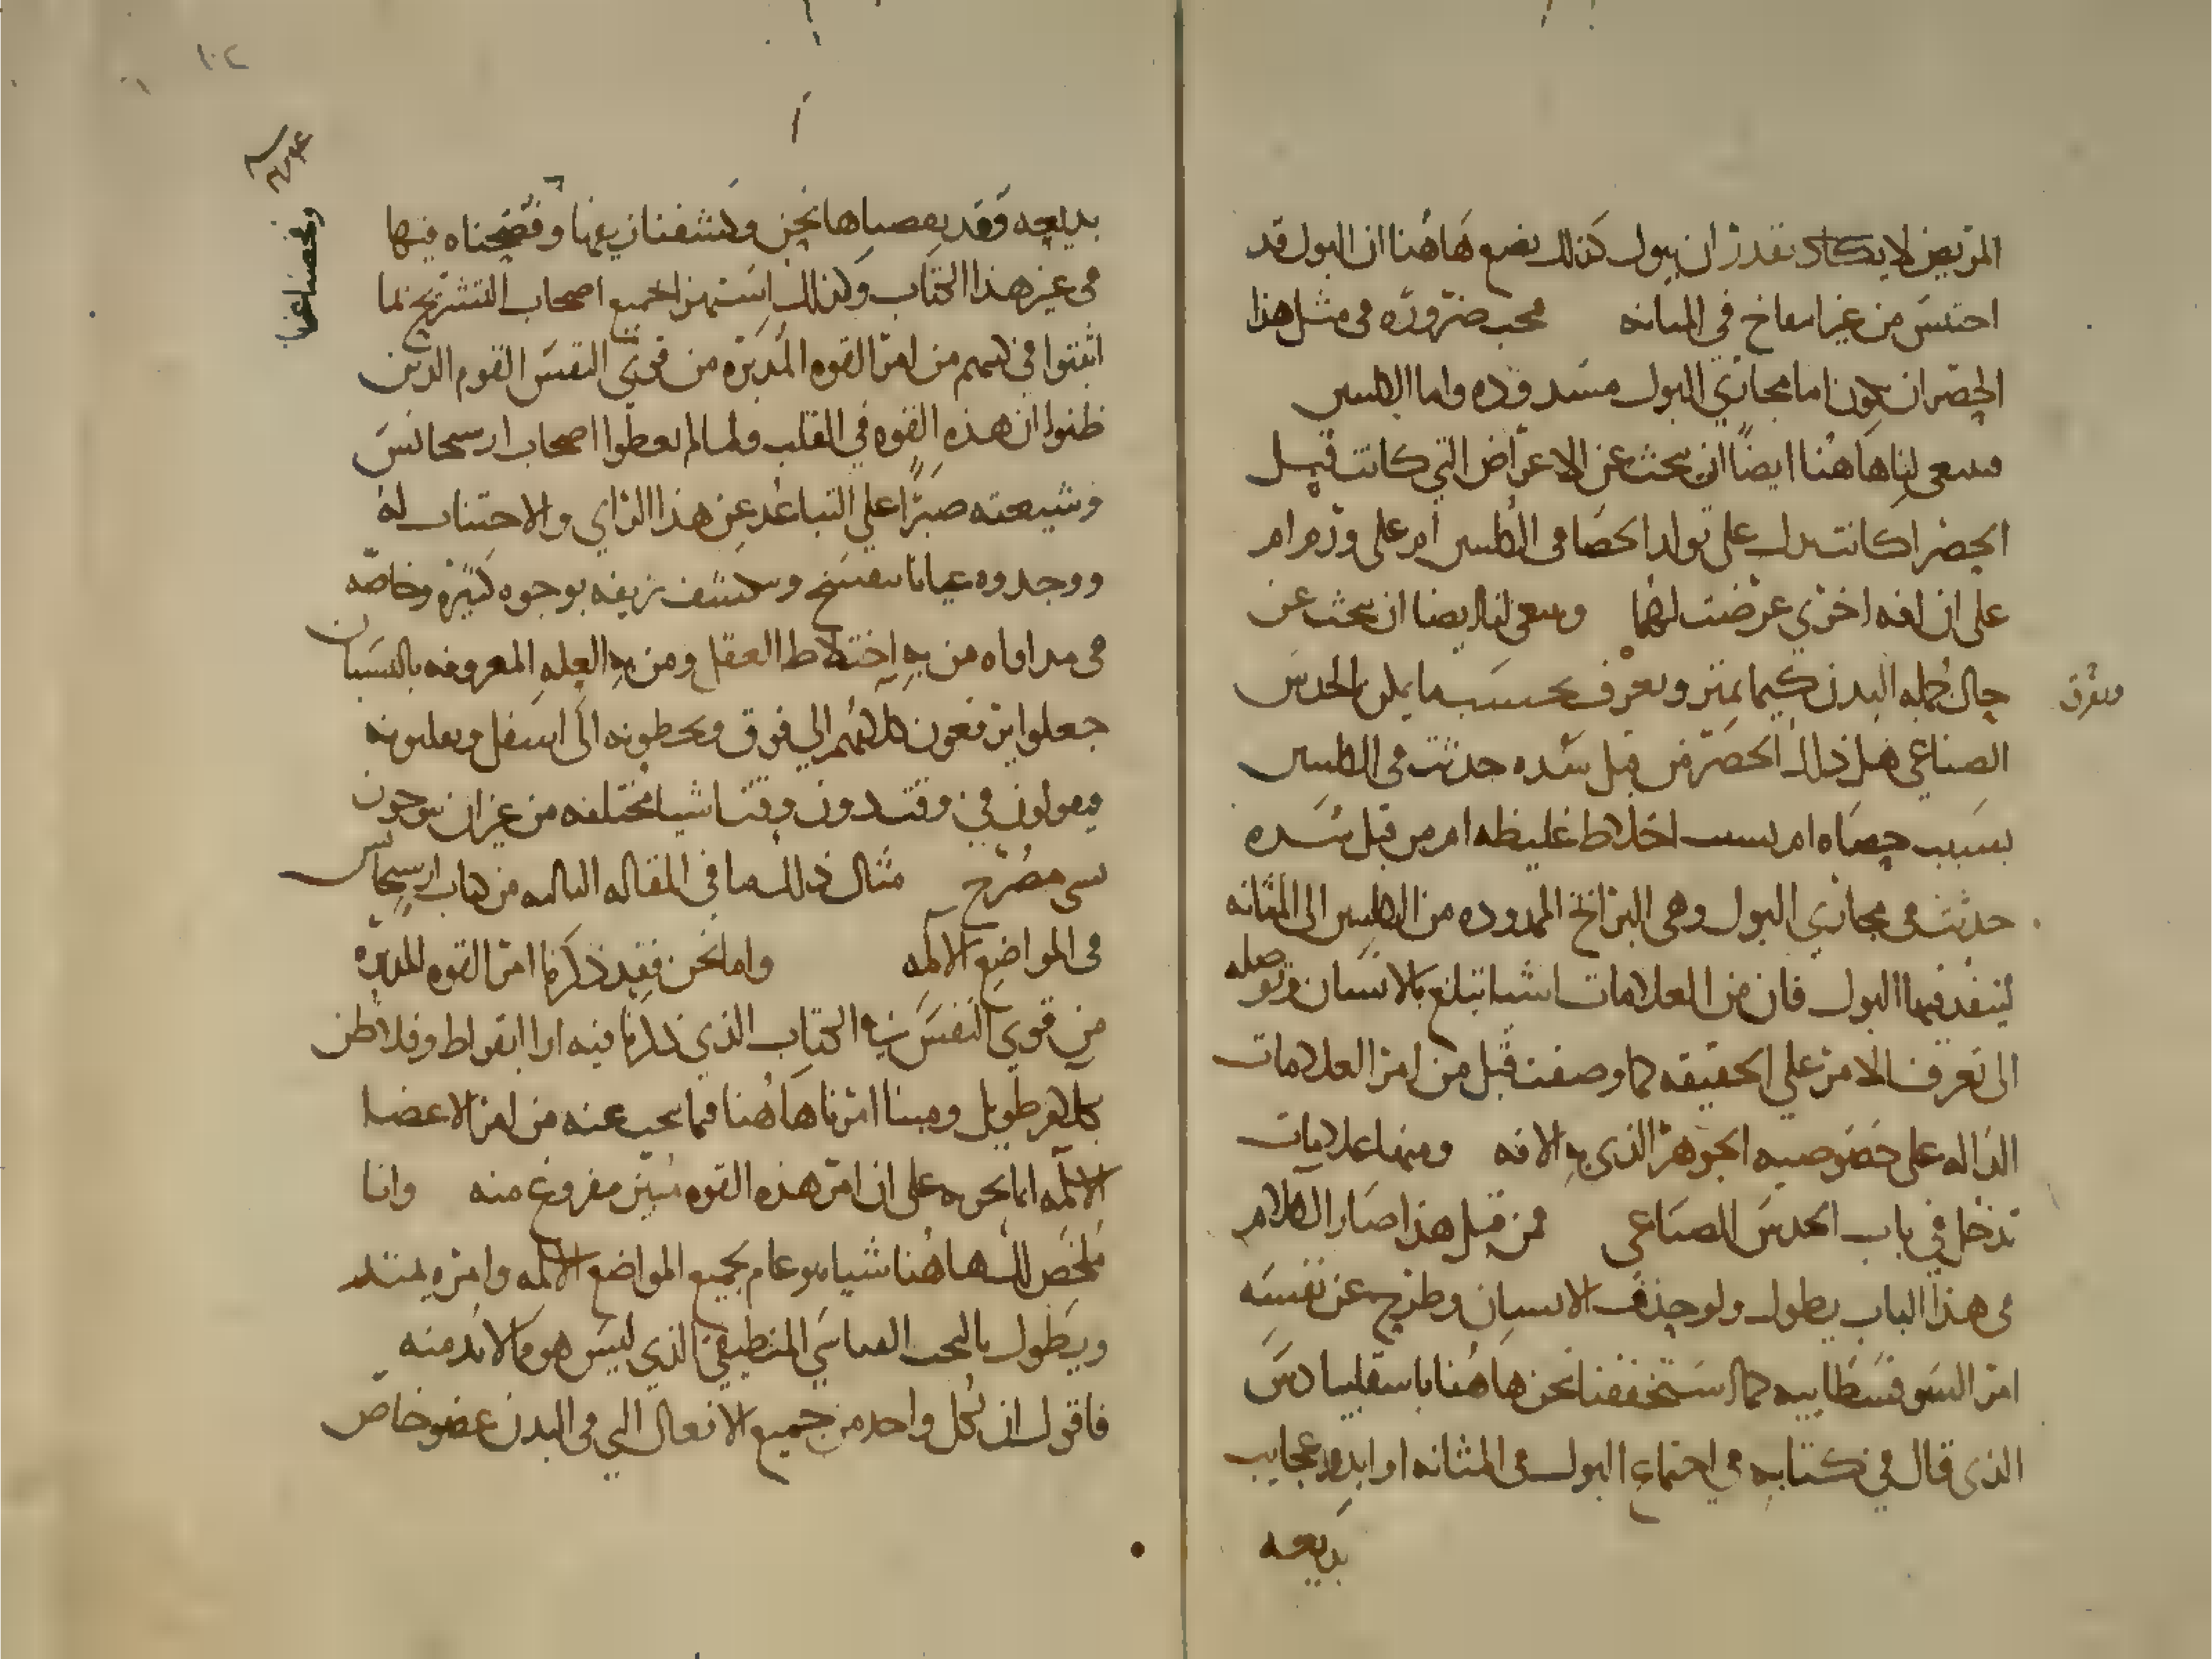 المريض لا يكاد يقدر ان يبول كذلك نضع هاهنا ان البول قد
احتبس من غير انتفاخ في المثانه فيجب ضروره في مثل هذا
الحصر ان يكون اما مجاري البول مسدوده واما الكليتين
فينبغي لنا هاهنا ايضا ان نبحث عن الاعراض التي كانت قبل
الحصر اكانت تدل على تولد الحصا في الكليتين ام على ورم ام
على ان افه اخري عرضت لهما وينبغي لنا ايضا ان نبحث عن
حال جمله البدن كيما نميز ونعرف بحسب ما يمكن بالحدس
ونفرق
الصناعي هل ذلك الحصر من قبل سده حدثت في الكليتين
بسبب حصاه ام بسبب اخلاط غليظه ام من قبل سده
حدثت في مجاري البول وهي البرابخ الممدوده من الكليتين الى المثانه
لينفذ فيها البول فان من العلامات اشيا تبلغ بالانسان وتوصله
الى تعرف الامر علي الحقيقه كما وصفت قبل من امر العلامات
الداله على خصوصيه الجوهر الذي به الافه ومنها علامات
تدخل في باب الحدس الصناعي فمن قبل هذا صار الكلام
في هذا الباب يطول ولو حذف الانسان وطرح عن نفسه
امر السوفسطاييه كما استخففنا نحن هاهنا باسقلبيادس
الذي قال في كتابه في احتماع البول في المثانه اوابد وعجايب
بديعه
بديعه وقد نقصناها نحن وكشفنا زيفها وفضحناه فيها
في غير هذا الكتاب وكذلك استهزا جميع اصحاب التشريح بما
اثبتوا في كتبهم من امر القوه المدبره من قوي النفس القوم الذين
ظنوا ان هذه القوه في القلب ولما لم يعطوا اصحاب ارسجانس
وشيعته صبرا علي التباعد عن هذا الراي والاجتناب له
ووجدوه عيانا يفتضح وينكشف زيفه بوجوه كثيره وخاصه
في مداواه من به اختلاط العقل ومن به العله المعروفه بالنسيان
جعلوا يرفعون كلامهم الي فوق ويحطونه الى اسفل ويقلبونه
فيقولون في وقت دون وقت اشيا مختلفه من غير ان يبوحون
بشي مصرح مثال ذلك ما في المقاله الثالثه من كتاب ارسجانس
في المواضع الالمه واما نحن فقد ذكرنا امر القوه المدبره
من قوي النفس في الكتاب الذي ذكرنا فيه ارا ابقراط وفلاطن
بكلام طويل وبنينا امرنا هاهنا فيما نبحث عنه من امر الاعضا
الالمه انما نجريه على ان امر هذه القوه مبين مفروغ منه وانا
ملخص لك هاهنا شيا هو عام لجميع المواضع الالمه وامره يمتد
ويطول بالبحث القياسي المنطيقي الذي ليس هو مما لا بد منه
فاقول ان لكل واحد من جميع الافعال التي في البدن عضو خاص